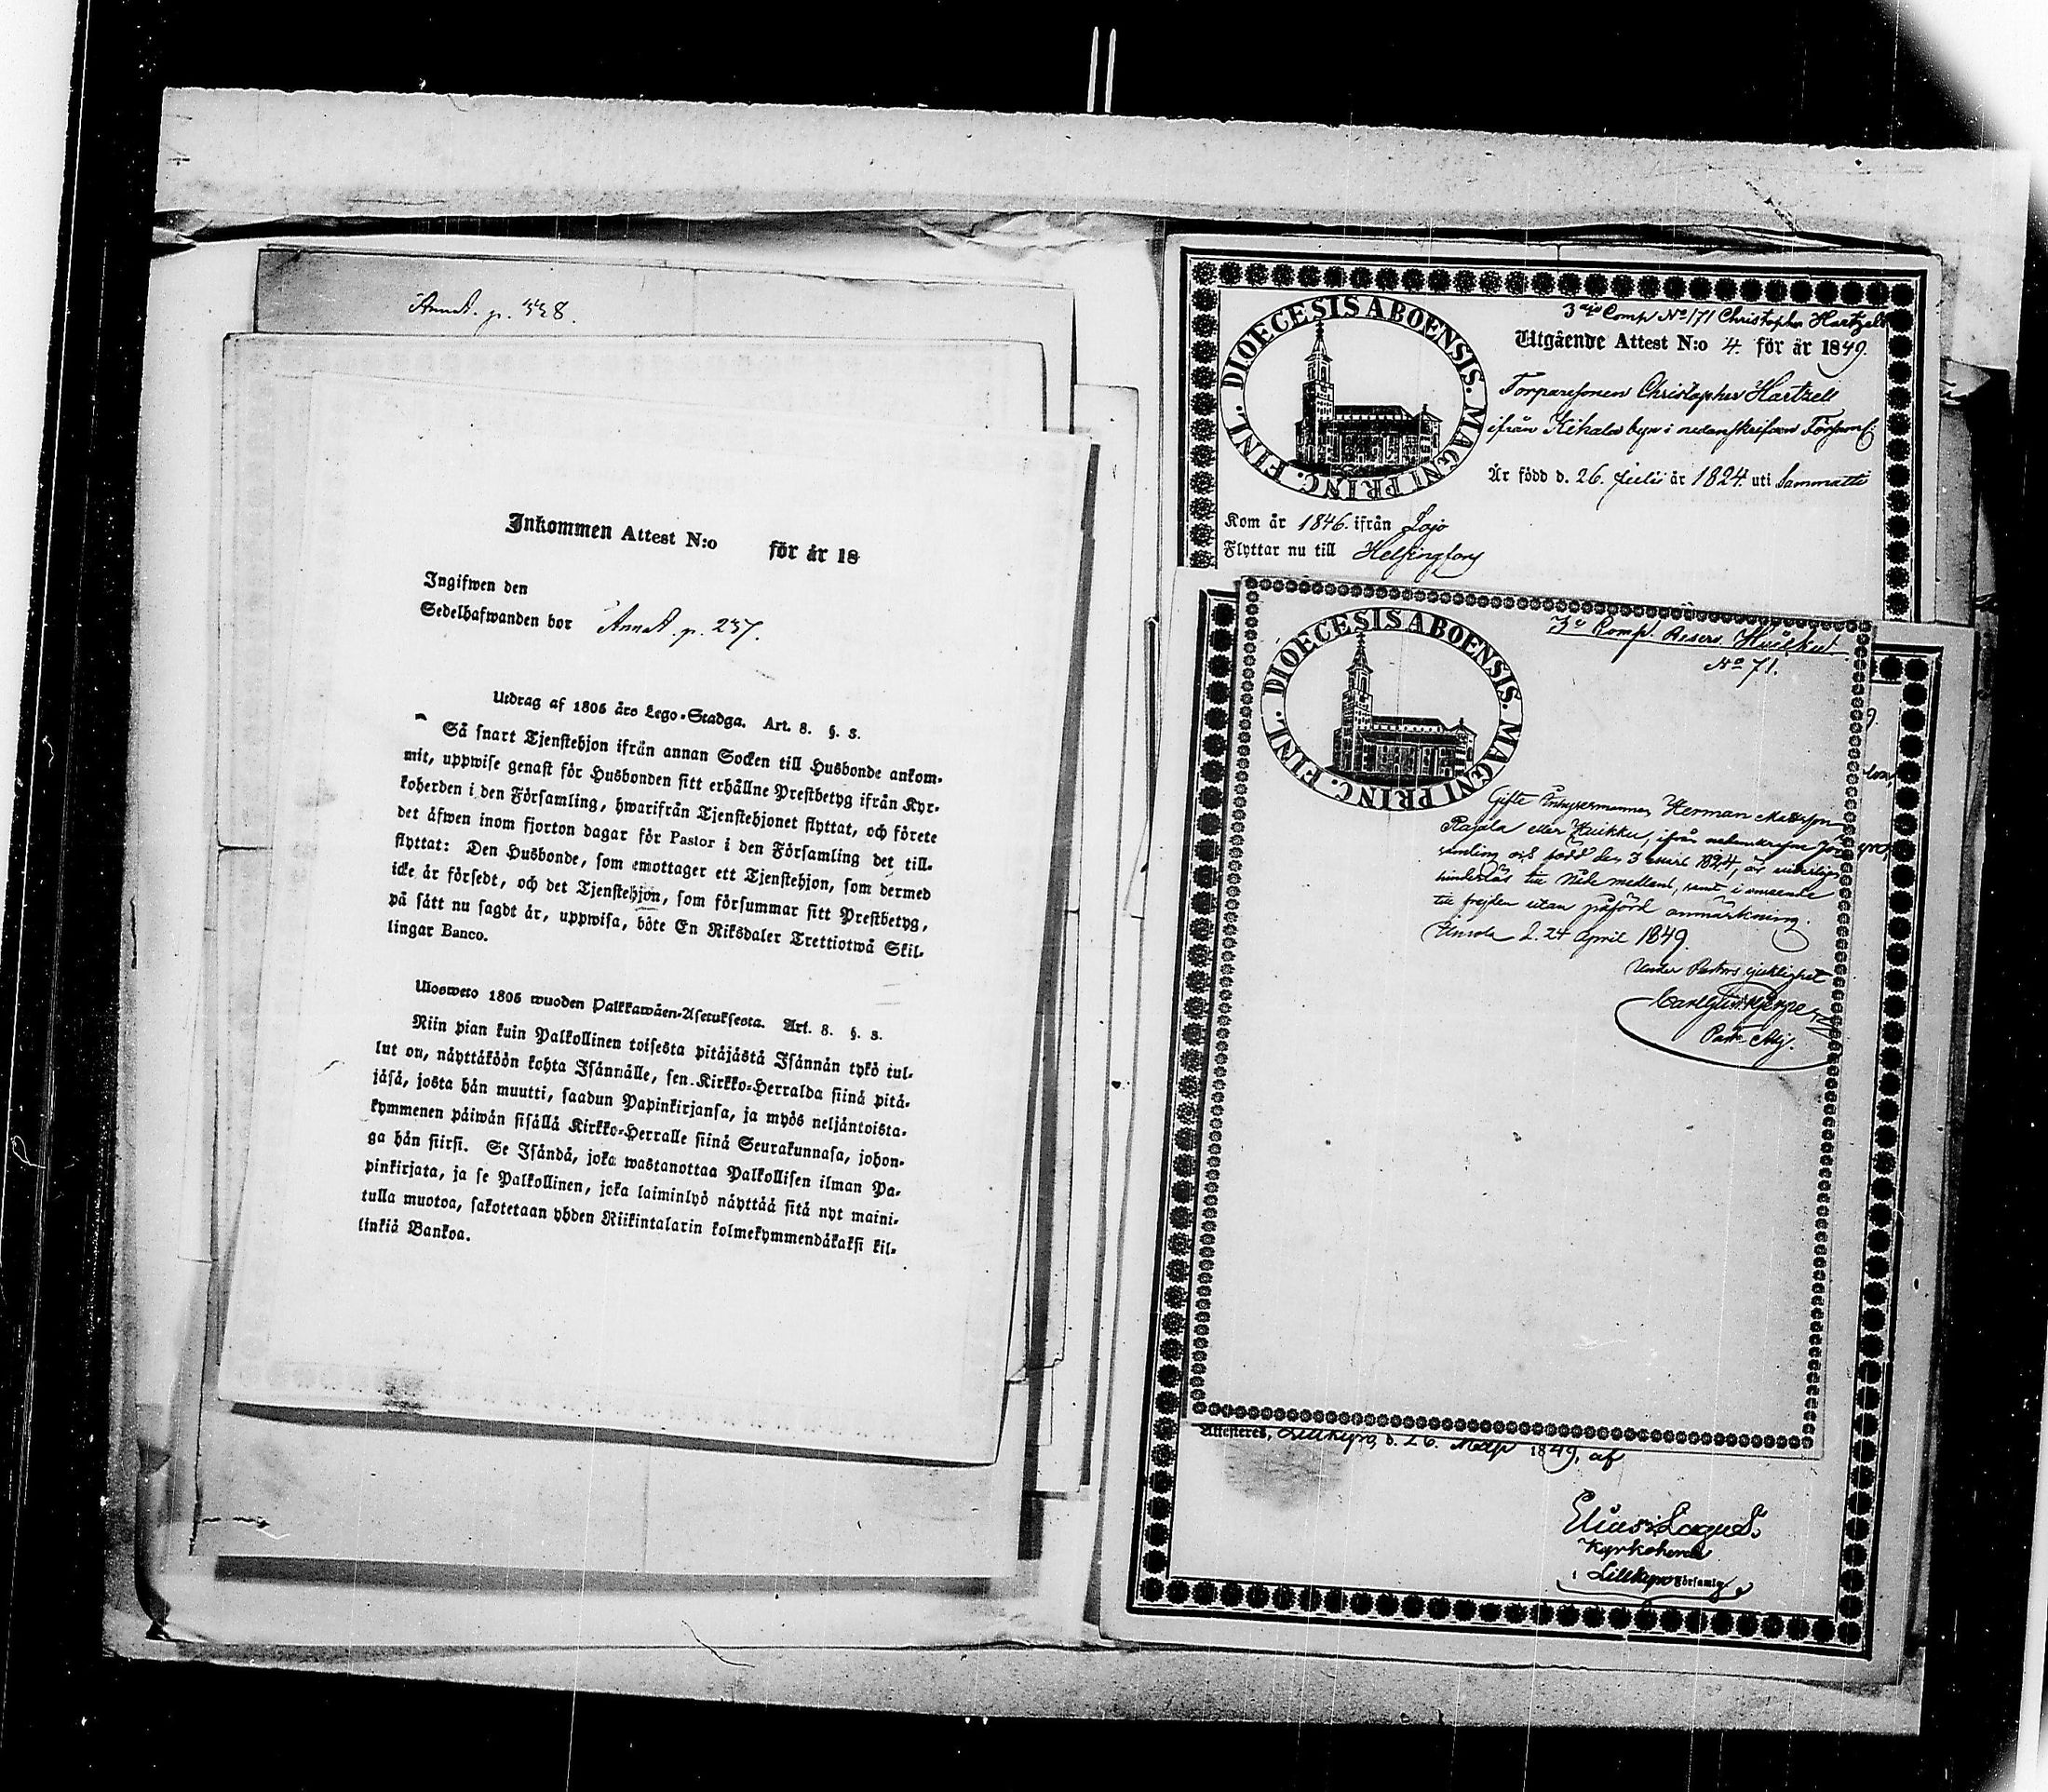 AnnA. p. 338.
Inkommen Attest N:o för år 18
Ingifwen den
Sedelhafwanden bor AnnA. p. 237.
Utdrag af 1805 års Lego-Stadga. Art. 8. §. 3.
Så snart Tjenstehjon ifrån annan Socken till Husbonde ankom-
mit, uppwise genast för Husbonden sitt erhållne Prestbetyg ifrån Kyr-
koherden i den Församling, hwarifrån Tjenstehjonet flyttat, och förete
det åfwen inom fjorton dagar för Pastor i den Församling det till-
flyttat: Den Husbonde, som emottager ett Tjenstehjon, som dermed
icke är försedt, och det Tjenstehjon, som försummar sitt Prestbetyg,
på sätt nu sagdt är, uppwisa, böte En Riksdaler Trettiotwå Skil-
lingar Banco.
Ulosweto 1805 wuoden Palkkawäen-Asetuksesta. Art. 8. §. 3.
Niin pian kuin Palkollinen toisesta pitäjästä Isännän tykö tul-
lut on, näyttäköön kohta Isännälle, sen Kirkko-Herralda siinä pitä-
jäsä, josta hän muutti, saadun Papinkirjansa, ja myös neljäntoista-
kymmenen päiwän sisällä Kirkko-Herralle siinä Seurakunnasa, johon-
ga hän siirsi. Se Isändä, joka wastanottaa Palkollisen ilman Pa-
pinkirjata, ja se Palkollinen, joka laiminlyö näyttää sitä nyt maini-
tulla muotoa, sakotetaan yhden Riikintalarin kolmekymmendäkaksi kil-
linkiä Bankoa.
DIOECESIS ABOENSIS. MAGNI PRINC. FINL.
3dje Comp No 171 Christopher Hartzell
Utgående Attest N:o 4. för år 1849.
Torparesonen Christopher Hartzell
ifrån Kihala byn i nedanskrifven Församl.
Är född d. 26. Julii år 1824. uti Sammatti
Kom år 1846. ifrån Lojo
Flyttar nu till Helsingfors
DIOECESIS ABOENSIS. MAGNI PRINC. FINL.
3e Comp. Reserv.
No 71.
Gifte Herman
Rajala eller Huikku, ifrånFör-
samling och född den 3 1824, är
hinderlös till medlant, samt i anseende
till frejden utan påförd anmärkning.
d. 24 April 1849.
Under Pastors sjuklighet
Past. Adj.
Attesteras, Lillkyro, d. 26. 1849, af
Elias Lagus.
Kyrkoherde
i Lillkyro Församlg.